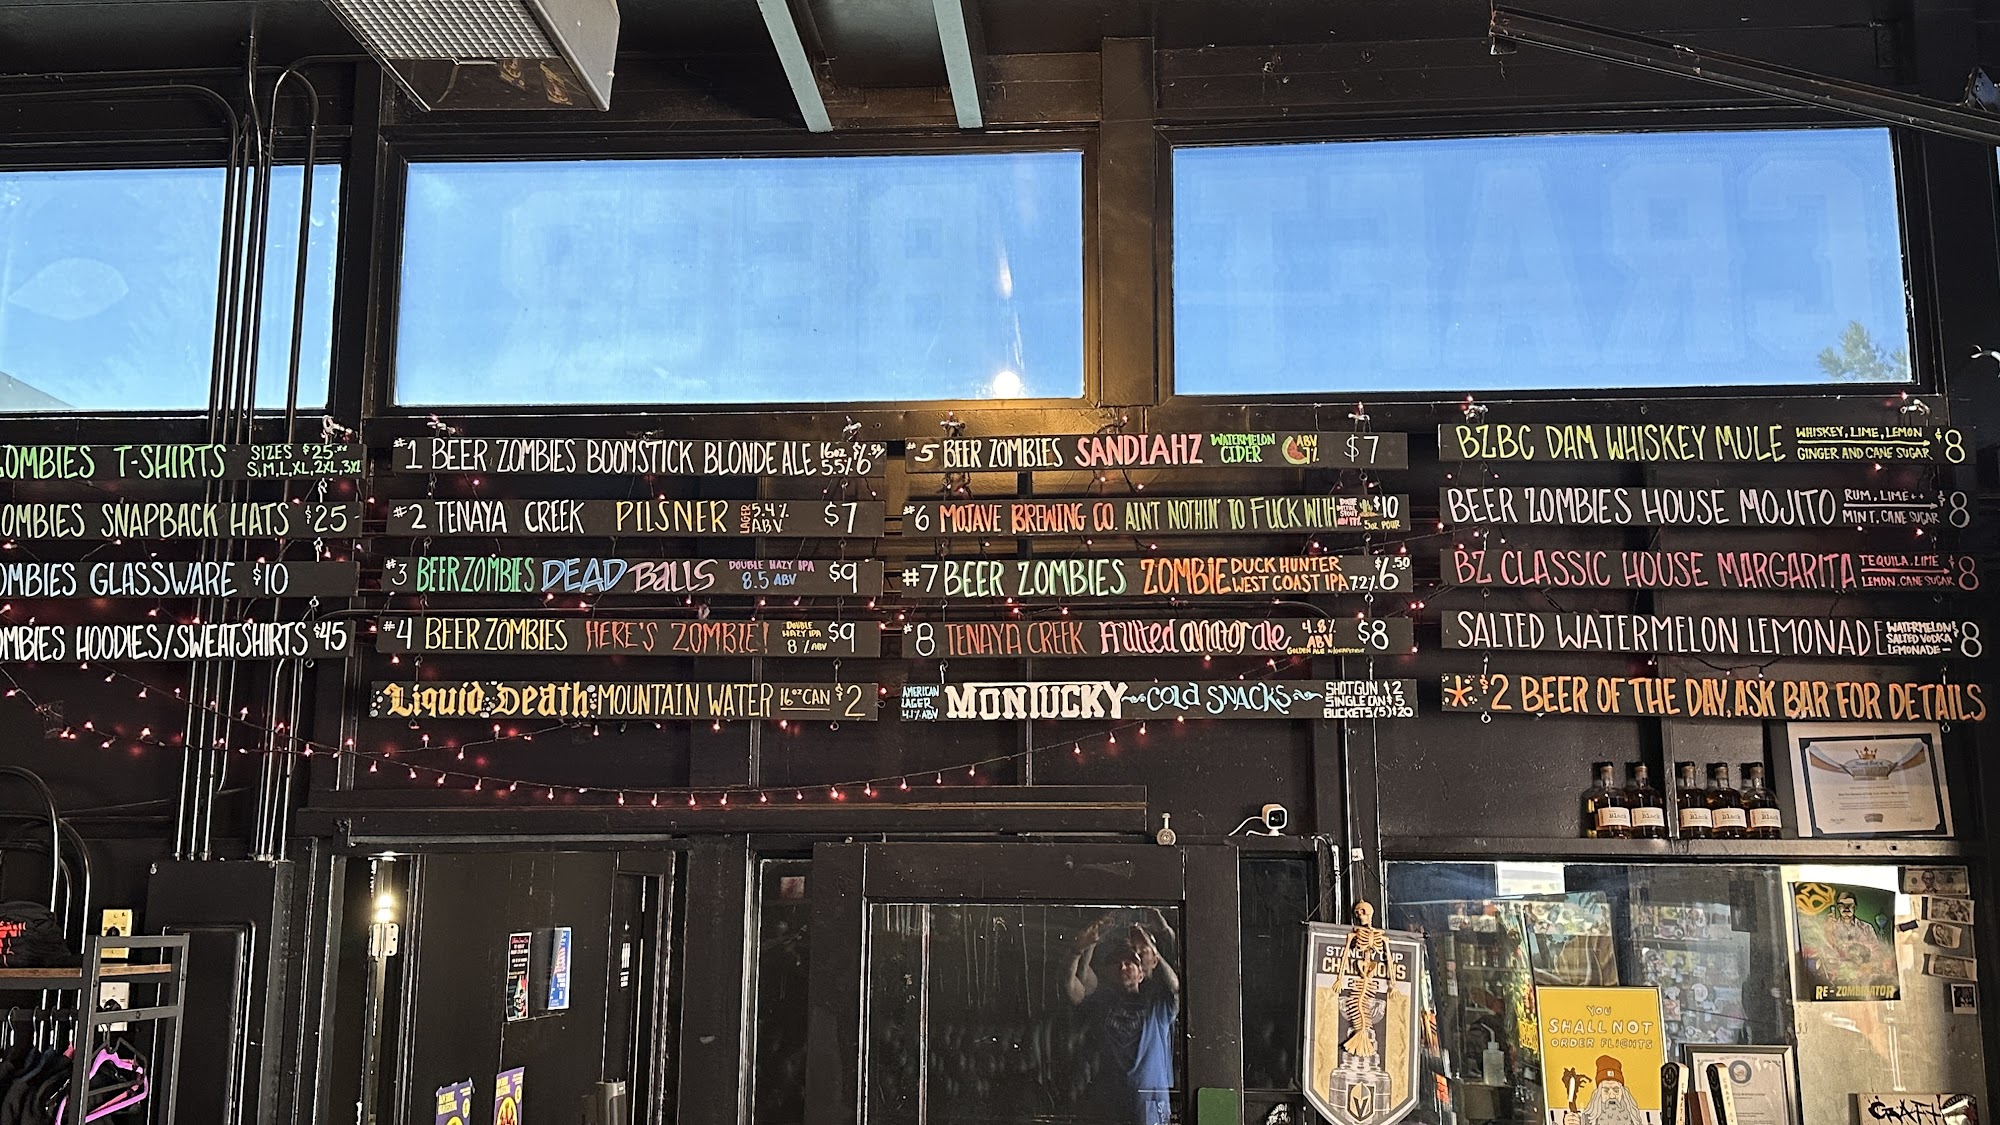 ZOMBIES T-SHIRTS SIZES $25
S, M, L, XL, 2XL, 3XL
ZOMBIES SNAPBACK HATS $25
OMBIES GLASSWARE $10
OMBIES HOODIES/SWEATSHIRTS $45
#1 BEER ZOMBIES BOOMSTICK BLONDE ALE 16oz 5.5% $7.50 6
#2 TENAYA CREEK PILSNER LAGER 5.4% ABV $7
#3 BEER ZOMBIES DEAD BALLS DOUBLE HAZY IPA 8.5 ABV $9
#4 BEER ZOMBIES HERE'S ZOMBIE! DOUBLE HAZY IPA 8% ABV $9
LIQUID DEATH MOUNTAIN WATER 16oz CAN $2
#5 BEER ZOMBIES SANDIAHZ WATERMELON CIDER ABV 7% $7
#6 MOJAVE BREWING CO. AINT NOTHIN' TO FUCK WITH $10
5oz POUR
#7 BEER ZOMBIES ZOMBIE DUCK HUNTER WEST COAST IPA 7.2% $7.50 6
#8 TENAYA CREEK Fruited aviator ale 4.8% ABV $8
AMERICAN LAGER 4.1% ABV MONTUCKY COLD SNACKS SHOTGUN $2
SINGLE CAN $5
BUCKETS (5) $20
BZBC DAM WHISKEY MULE WHISKEY, LIME, LEMON $8
GINGER AND CANE SUGAR
BEER ZOMBIES HOUSE MOJITO RUM, LIME $8
MINT, CANE SUGAR
BZ CLASSIC HOUSE MARGARITA TEQUILA, LIME $8
LEMON, CANE SUGAR
SALTED WATERMELON LEMONADE WATERMELON $8
SALTED VODKA
LEMONADE
* $2 BEER OF THE DAY, ASK BAR FOR DETAILS
CRAFT
BEER
Black Black Black Black Black
STANLEY CUP
CHAMPIONS
YOU
SHALL NOT
ORDER FLIGHTS
RE-ZOMBINATOR
CRAFT